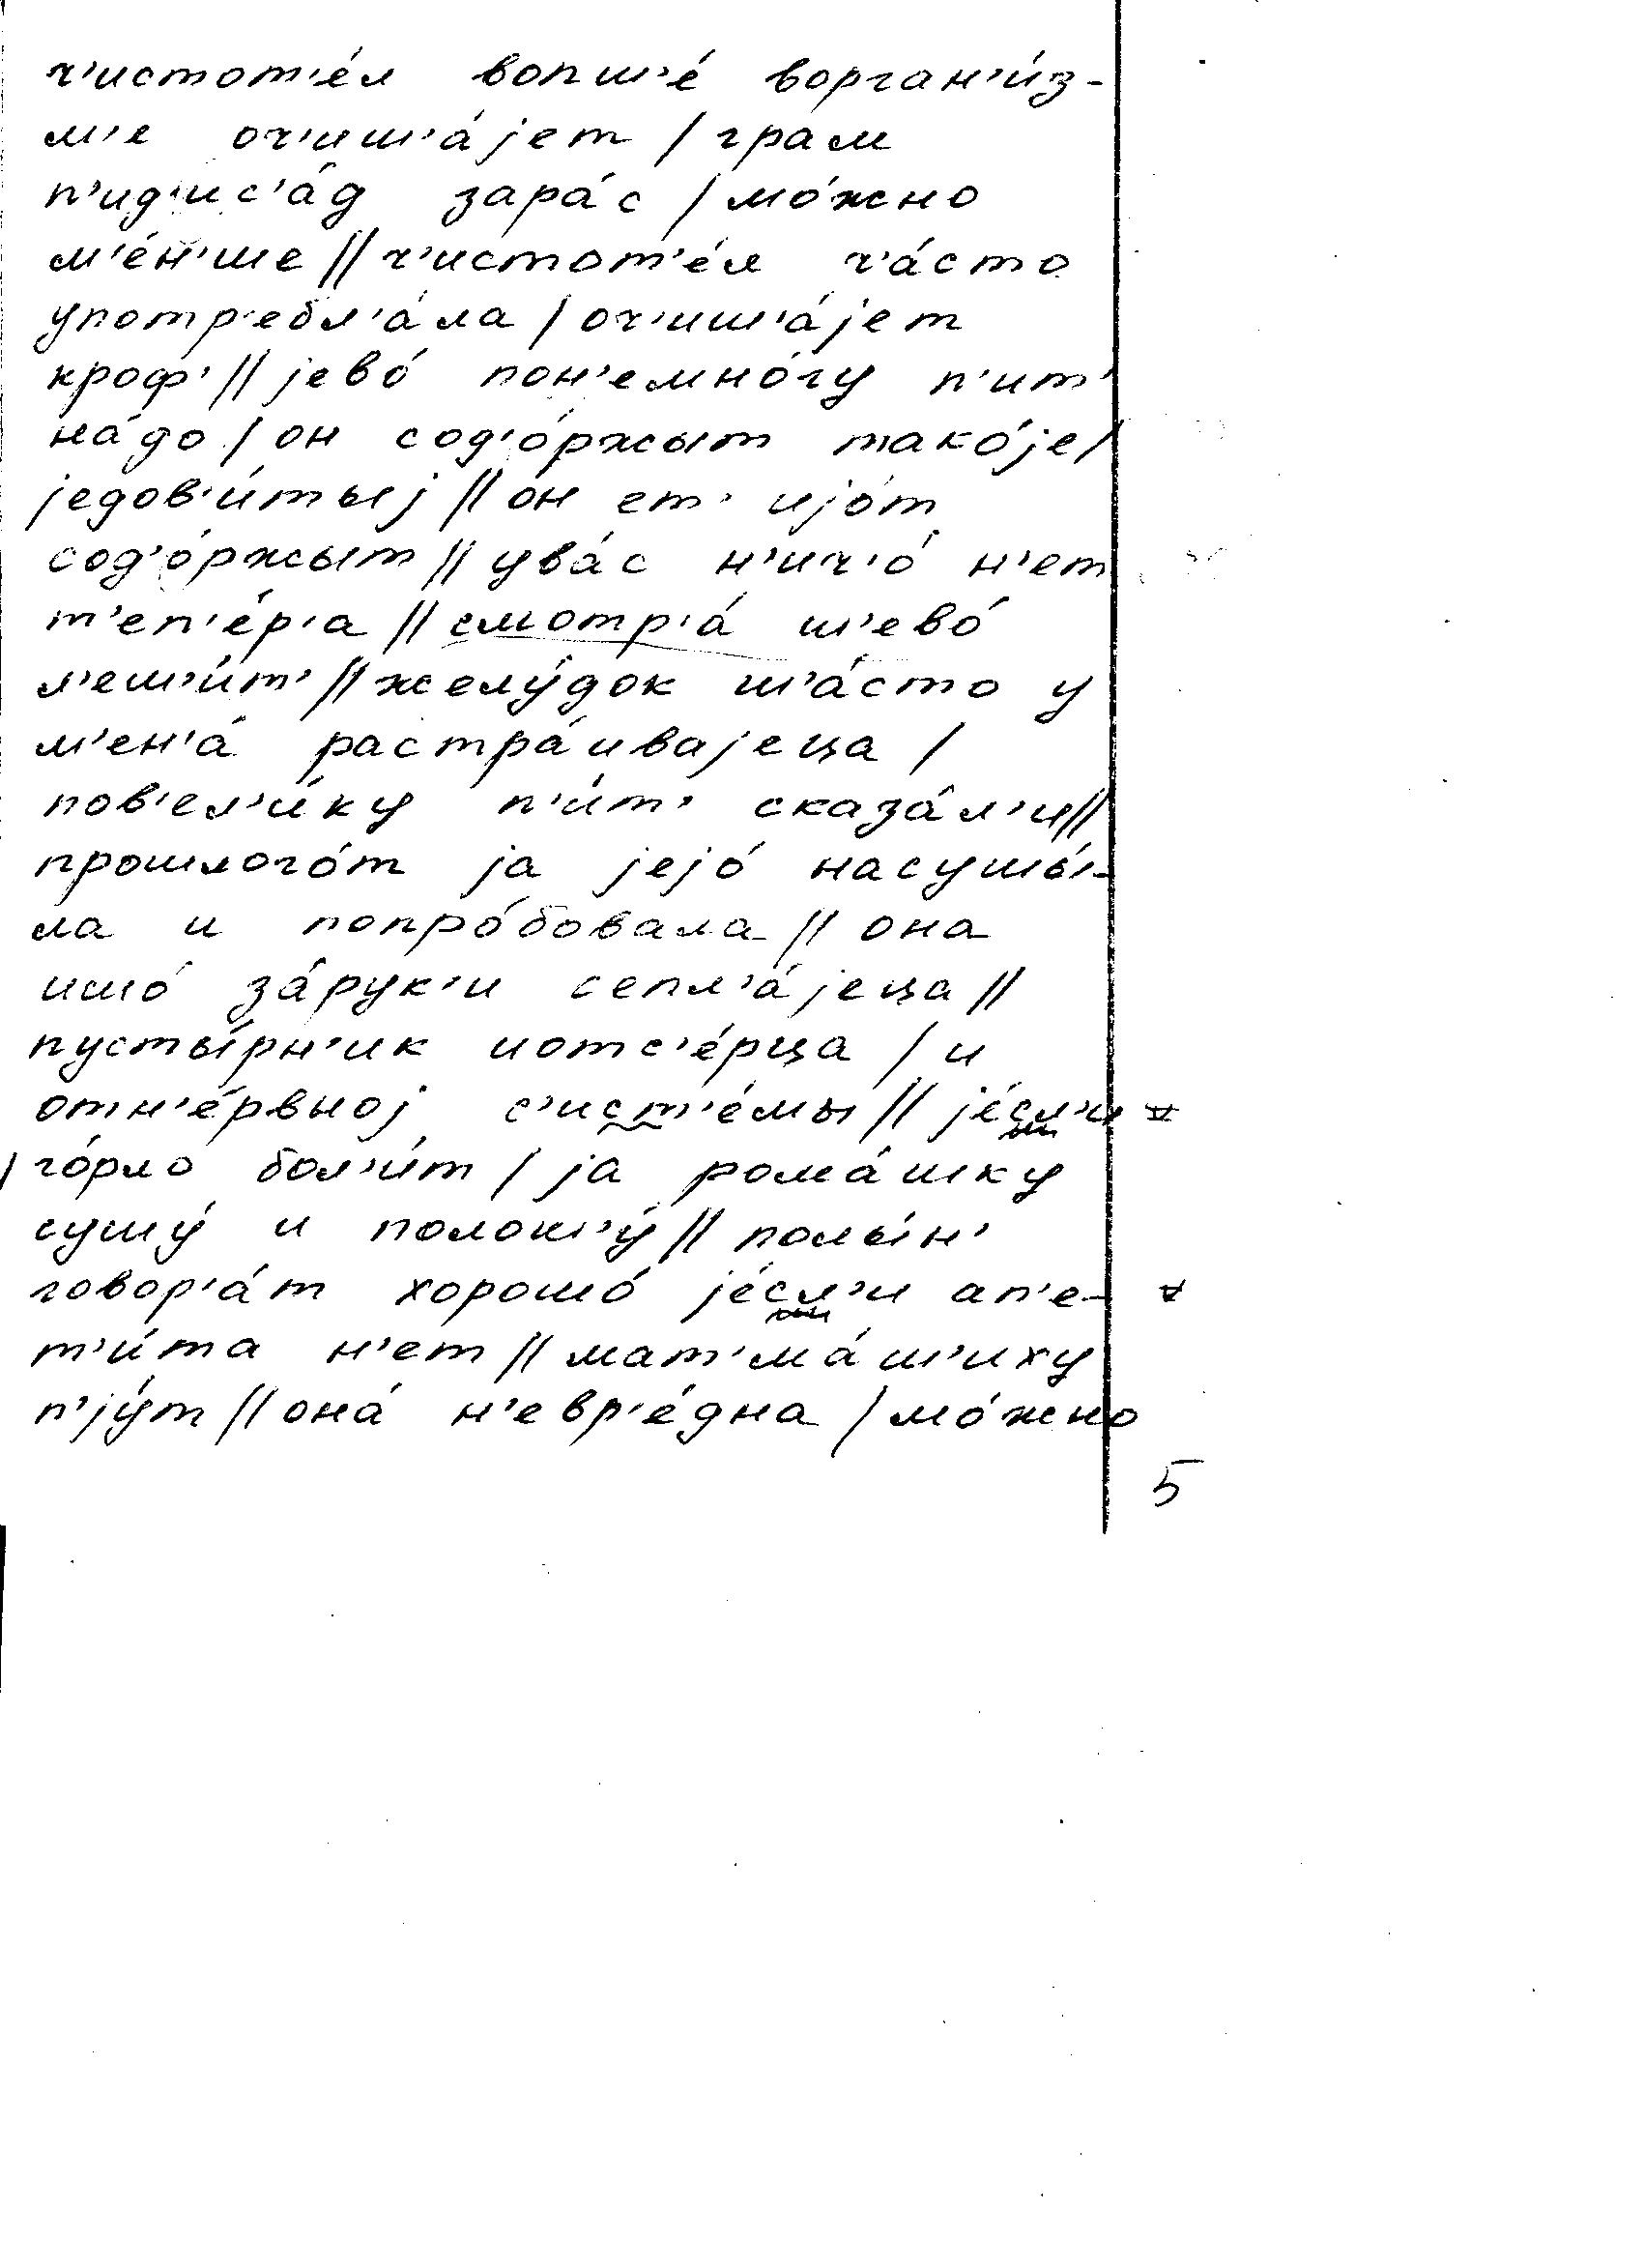 ч'истот'е́л вопш'е́ ворган'и́з-
м'е оч'иш'а́jет / грам
п'ид'ис'а́д зара́с / мо́жно
м'е́н'ше // ч'истот'е́л ч'а́сто
употр'ебл'а́ла / оч'иш'а́jет
кроф' // jево́ пон'емно́гу п'ит'
на́до / он сод'о́ржыт тако́jе /
jедов'и́тыj // о́н ет' иjо́т
сод'о́ржыт // ува́с н'ич'о́ н'ет
т'еп'е́р'а // смотр'а́ ш'ево́
л'еш'и́т' // желу́док ш'а́сто у
м'ен'а́ растра́иваjеца /
пов'ел'и́ку п'и́т' сказа́л'и //
прошлого́т jа jеjо́ насушы́-
ла и попро́бовала // она
ишо́ за́рук'и сепл'а́jеца //
пусты́рн'ик иотс'е́рца / и
отн'е́рвноj с'ист'е́мы // jе́сл'и
/ го́рло бол'и́т / jа рома́шку
сушу́ и полош'у́ // полы́н'
говор'а́т хорошо́ jе́сл'и ап'е-
т'и́та н'ет // мат'ма́ш'иху
п'jу́т // она́ н'евр'е́дна / мо́жно
5